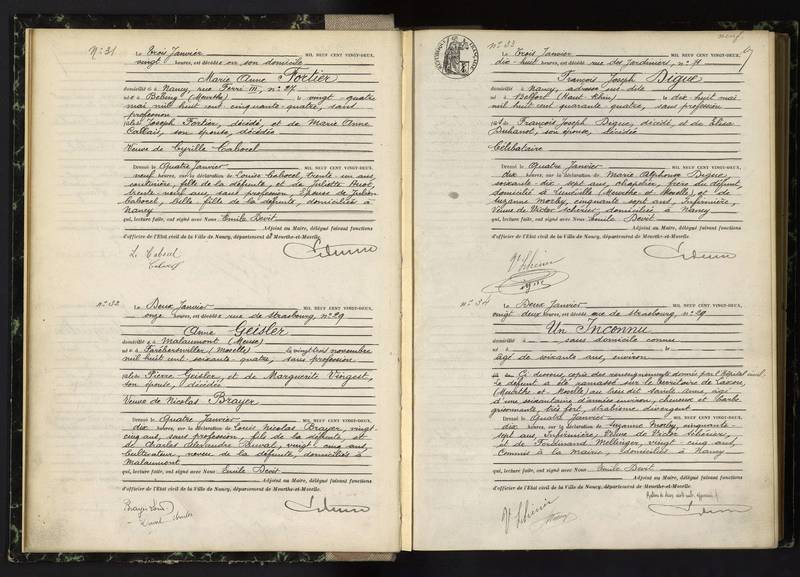 N° 31
Le Trois Janvier MIL NEUF CENT VINGT-DEUX,
vingt heures, est décédée en son domicile
Marie Anne Fortier
domicilié à Nancy, rue Ferri III, n° 27
né à (Meurthe) le vingt quatre
mai mil huit cent cinquante-quatre, sans
profession
fille Joseph Fortier, décédé, et de Marie Anne
Callais, son épouse, décédée
Veuve de Cyrille Cabocel
Dressé le Quatre Janvier MIL NEUF CENT VINGT-DEUX,
neuf heures, sur la déclaration de Louise Cabocel, trente-un ans,
couturière, fille de la défunte, et de Juliette
trente neuf ans, sans profession, Epouse de Julien
Cabocel, belle-fille de la défunte, domiciliés à
Nancy
qui, lecture faite, ont signé avec Nous Emile Devit
Adjoint au Maire, délégué faisant fonctions
d'officier de l'Etat civil de la Ville de Nancy, département de Meurthe-et-Moselle.
L. Cabocel
n° 32
Le Deux Janvier MIL NEUF CENT VINGT-DEUX,
onze heures, est décédée rue de Strasbourg, n° 29
Anne Geisler
domicilié à Malaumont (Meuse)
né à Farébersviller (Moselle) le vingt trois novembre
mil huit cent soixante quatre, sans profession
fille Pierre Geisler et de Marguerite Vingest,
son épouse, décédés
Veuve de Nicolas Brayer
Dressé le Quatre Janvier MIL NEUF CENT VINGT-DEUX,
dix heures, sur la déclaration de Louis Nicolas Brayer, vingt
cinq ans, sans profession, fils de la défunte, et
de Charles Alexandre Duval, vingt cinq ans,
cultivateur, neveu de la défunte, domiciliés à
Malaumont
qui, lecture faite, ont signé avec Nous Emile Devit
Adjoint au Maire, délégué faisant fonctions
d'officier de l'Etat civil de la Ville de Nancy, département de Meurthe-et-Moselle.
neuf.
n° 33
Le Trois Janvier MIL NEUF CENT VINGT-DEUX,
dix-huit heures, est décédé rue des Jardiniers, n° 71
François Joseph Digue
domicilié à Nancy, adresse sus-dite
né à Belfort (Haut Rhin) le dix huit mai
mil huit cent quarante quatre, sans profession
fils de François Joseph Digue, décédé, et de Elisa
Duhanot, son épouse, décédée
Célibataire
Dressé le Quatre Janvier MIL NEUF CENT VINGT-DEUX,
dix heures, sur la déclaration de Marie Alphonse Digue,
soixante dix sept ans, chapelier, frère du défunt,
domicilié à Lunéville (Meurthe et Moselle), et de
Suzanne Morley, cinquante sept ans, Infirmière,
Veuve de Victor Schérier, domiciliée à Nancy
qui, lecture faite, ont signé avec Nous Emile Devit
Adjoint au Maire, délégué faisant fonctions
d'officier de l'Etat civil de la Ville de Nancy, département de Meurthe-et-Moselle.
n° 34
Le Deux Janvier MIL NEUF CENT VINGT-DEUX,
vingt deux heures, est décédé rue de Strasbourg, n° 29
Un Inconnu
domicilié à sans domicile connu
né à le
âgé de soixante ans, environ
Ci dessous, copie des renseignements donnés par l'Hôpital civil.
Le défunt a été ramassé sur le territoire de Laxou,
(Meurthe et Moselle) au lieu dit Sainte Anne, âgé
d'une soixantaine d'années environ, cheveux et barbe
grisonnante, très fort, strabisme divergent
Dressé le Quatre Janvier MIL NEUF CENT VINGT-DEUX,
dix heures, sur la déclaration de Suzanne Morley, cinquante-
sept ans, Infirmière, Veuve de Victor Schérier,
et de Ferdinand Mellinger, vingt cinq ans,
Commis à la mairie, domiciliés à Nancy
qui, lecture faite, ont signé avec Nous Emile Devit
Adjoint au Maire, délégué faisant fonctions
d'officier de l'Etat civil de la Ville de Nancy, département de Meurthe-et-Moselle.